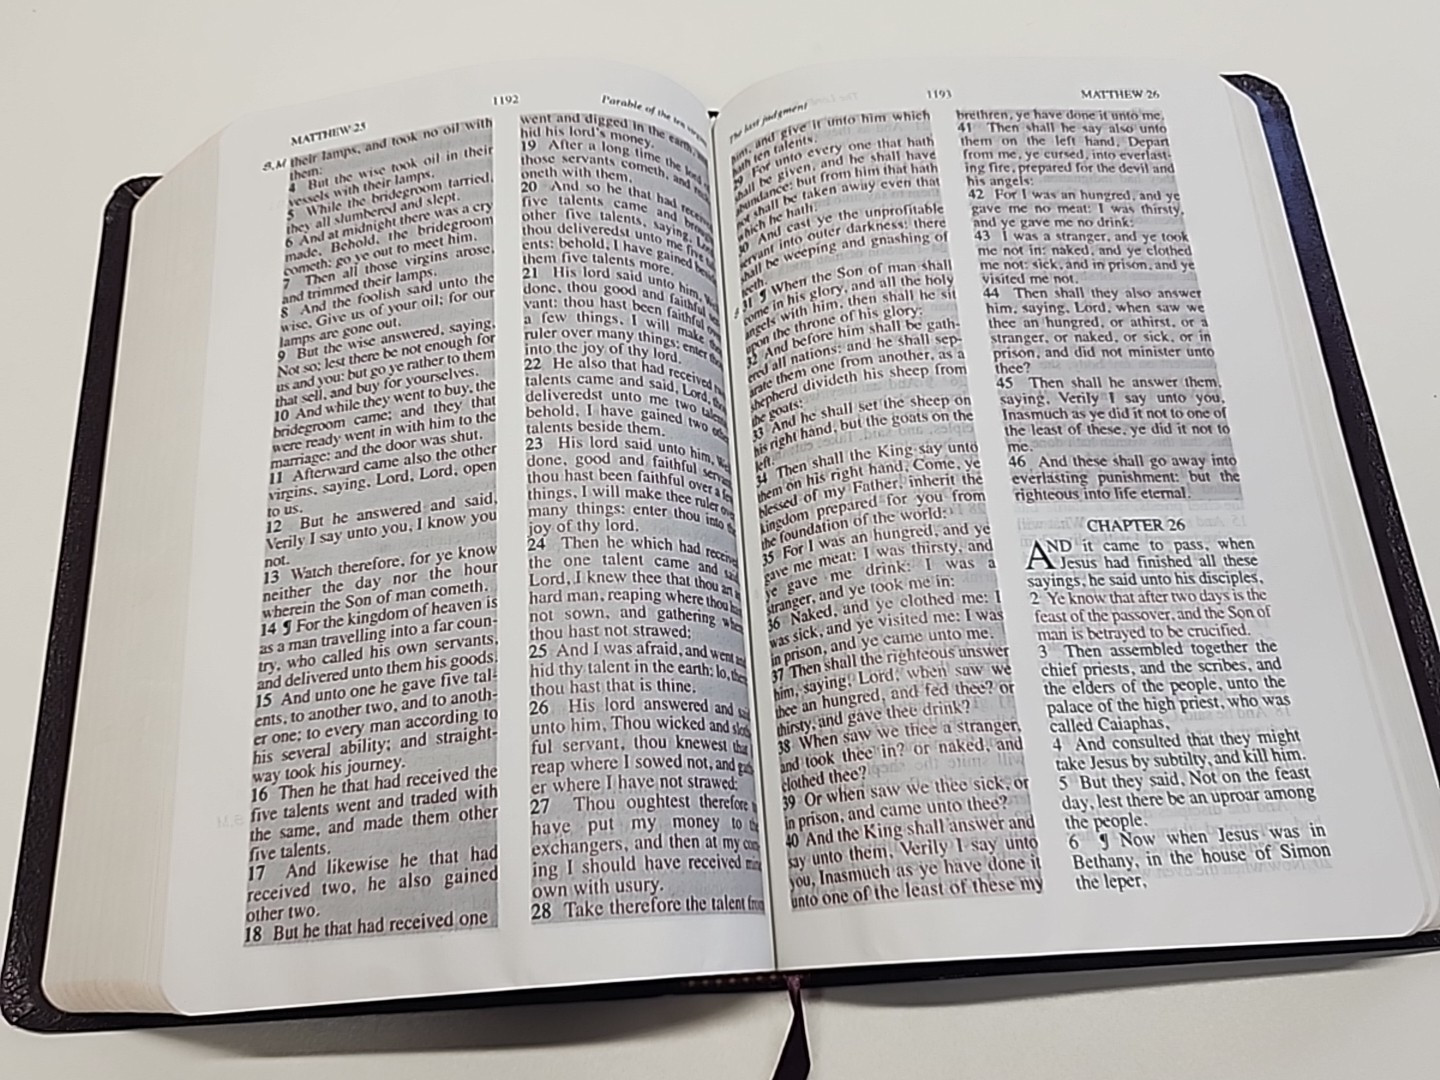 MATTHEW 25
1192
Parable of the ten virgins
B.M
their lamps, and took no oil with
them:
4 But the wise took oil in their
vessels with their lamps.
5 While the bridegroom tarried,
they all slumbered and slept.
6 And at midnight there was a cry
made, Behold, the bridegroom
cometh; go ye out to meet him.
7 Then all those virgins arose,
and trimmed their lamps.
8 And the foolish said unto the
wise, Give us of your oil; for our
lamps are gone out.
9 But the wise answered, saying,
Not so; lest there be not enough for
us and you: but go ye rather to them
that sell, and buy for yourselves.
10 And while they went to buy, the
bridegroom came; and they that
were ready went in with him to the
marriage: and the door was shut.
11 Afterward came also the other
virgins, saying, Lord, Lord, open
to us.
12 But he answered and said,
Verily I say unto you, I know you
not.
13 Watch therefore, for ye know
neither the day nor the hour
wherein the Son of man cometh.
14 ¶ For the kingdom of heaven is
as a man travelling into a far coun-
try, who called his own servants,
and delivered unto them his goods.
15 And unto one he gave five tal-
ents, to another two, and to anoth-
er one; to every man according to
his several ability; and straight-
way took his journey.
16 Then he that had received the
five talents went and traded with
the same, and made them other
five talents.
17 And likewise he that had
received two, he also gained
other two.
18 But he that had received one
went and digged in the earth, and
hid his lord's money.
19 After a long time the lord of
those servants cometh, and
oneth with them.
20 And so he that had received
five talents came and brought
other five talents, saying, Lord,
thou deliveredst unto me five tal-
ents: behold, I have gained beside
them five talents more.
21 His lord said unto him, Well
done, thou good and faithful ser-
vant: thou hast been faithful over
a few things, I will make thee
ruler over many things: enter thou
into the joy of thy lord.
22 He also that had received two
talents came and said, Lord, thou
deliveredst unto me two talents:
behold, I have gained two other
talents beside them.
23 His lord said unto him, Well
done, good and faithful servant;
thou hast been faithful over a few
things, I will make thee ruler over
many things: enter thou into the
joy of thy lord.
24 Then he which had received
the one talent came and said,
Lord, I knew thee that thou art an
hard man, reaping where thou hast
not sown, and gathering where
thou hast not strawed:
25 And I was afraid, and went and
hid thy talent in the earth: lo, there
thou hast that is thine.
26 His lord answered and said
unto him, Thou wicked and sloth-
ful servant, thou knewest that I
reap where I sowed not, and gath-
er where I have not strawed:
27 Thou oughtest therefore to
have put my money to the
exchangers, and then at my com-
ing I should have received mine
own with usury.
28 Take therefore the talent from
The last judgment
1193
MATTHEW 26
him, and give it unto him which
hath ten talents.
29 For unto every one that hath
shall be given, and he shall have
abundance: but from him that hath
not shall be taken away even that
which he hath.
30 And cast ye the unprofitable
servant into outer darkness: there
shall be weeping and gnashing of
teeth.
31 ¶ When the Son of man shall
come in his glory, and all the holy
angels with him, then shall he sit
upon the throne of his glory:
32 And before him shall be gath-
ered all nations: and he shall sep-
arate them one from another, as a
shepherd divideth his sheep from
the goats:
33 And he shall set the sheep on
his right hand, but the goats on the
left.
34 Then shall the King say unto
them on his right hand, Come, ye
blessed of my Father, inherit the
kingdom prepared for you from
the foundation of the world:
35 For I was an hungred, and ye
gave me meat: I was thirsty, and
ye gave me drink: I was a
stranger, and ye took me in:
36 Naked, and ye clothed me: I
was sick, and ye visited me: I was
in prison, and ye came unto me.
37 Then shall the righteous answer
him, saying, Lord, when saw we
thee an hungred, and fed thee? or
thirsty, and gave thee drink?
38 When saw we thee a stranger,
and took thee in? or naked, and
clothed thee?
39 Or when saw we thee sick, or
in prison, and came unto thee?
40 And the King shall answer and
say unto them, Verily I say unto
you, Inasmuch as ye have done it
unto one of the least of these my
brethren, ye have done it unto me.
41 Then shall he say also unto
them on the left hand, Depart
from me, ye cursed, into everlast-
ing fire, prepared for the devil and
his angels:
42 For I was an hungred, and ye
gave me no meat: I was thirsty,
and ye gave me no drink:
43 I was a stranger, and ye took
me not in: naked, and ye clothed
me not: sick, and in prison, and ye
visited me not.
44 Then shall they also answer
him, saying, Lord, when saw we
thee an hungred, or athirst, or a
stranger, or naked, or sick, or in
prison, and did not minister unto
thee?
45 Then shall he answer them,
saying, Verily I say unto you,
Inasmuch as ye did it not to one of
the least of these, ye did it not to
me.
46 And these shall go away into
everlasting punishment: but the
righteous into life eternal.
CHAPTER 26
AND it came to pass, when
Jesus had finished all these
sayings, he said unto his disciples,
2 Ye know that after two days is the
feast of the passover, and the Son of
man is betrayed to be crucified.
3 Then assembled together the
chief priests, and the scribes, and
the elders of the people, unto the
palace of the high priest, who was
called Caiaphas,
4 And consulted that they might
take Jesus by subtilty, and kill him.
5 But they said, Not on the feast
day, lest there be an uproar among
the people.
6 ¶ Now when Jesus was in
Bethany, in the house of Simon
the leper,